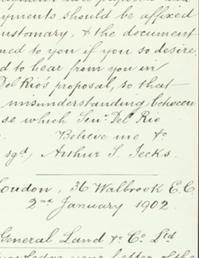 yments should be affixed
ustomary, & the document
ned to you if you so desire
d to hear from you in
Del Rio's proposal, so that
misunderstanding
se which Senr. Del Rio
Believe me &c
sgd, Arthur S. Jecks.
London, 36 Walbrook E.C.
2nd January 1902.
General Land &c Co. Ltd
knowledge your letter of the